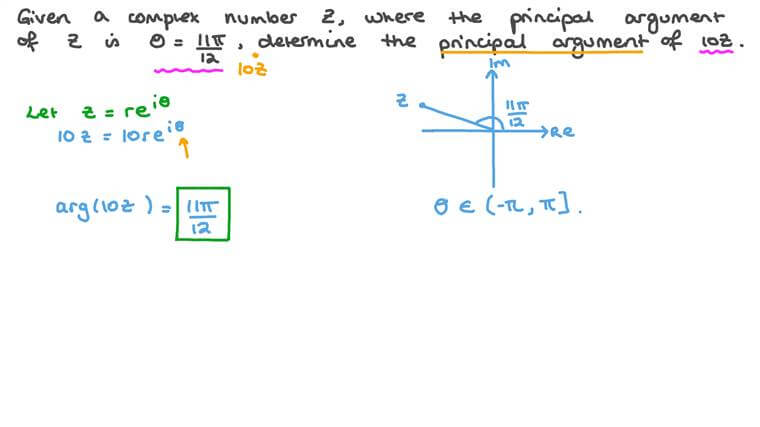 Given a complex number Z, where the principal argument
of Z is θ = 11π/12, determine the principal argument of 10Z.
10Z
Let Z = re^{iθ}
10Z = 10re^{iθ}
arg(10Z) = 11π/12
Im
Z
11π/12
Re
θ ∈ (-π, π].